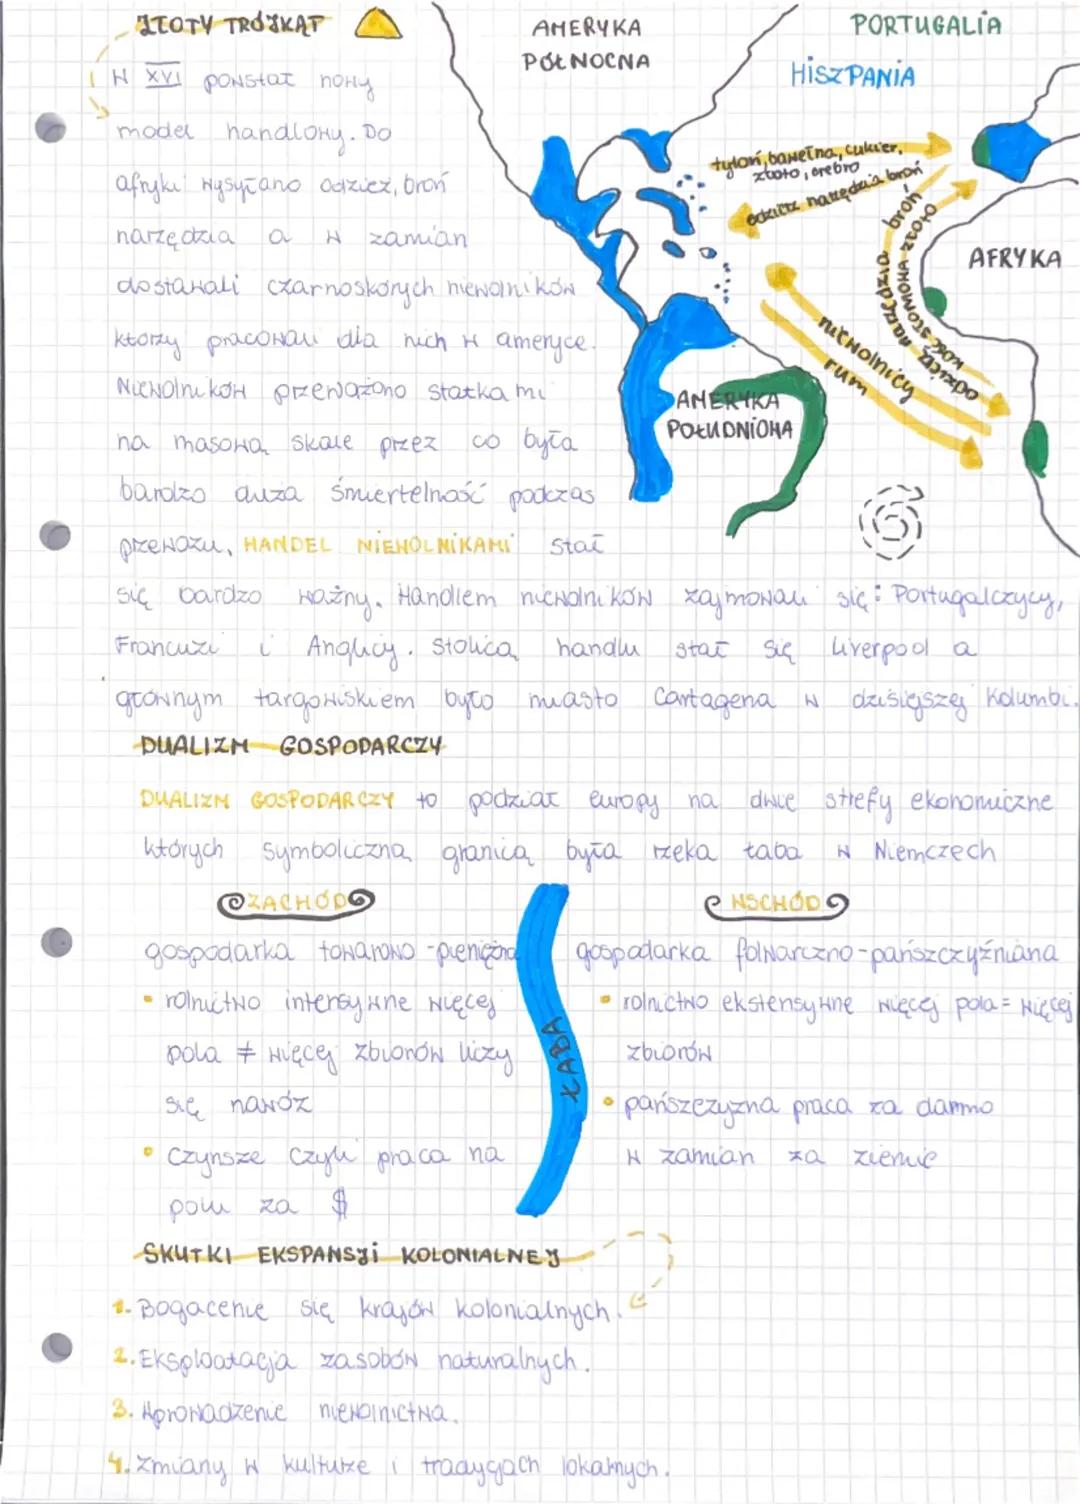 ZŁOTY TRÓJKĄT
W XVI powstał nowy
model handlowy. Do
afryki wysyłano odzież, broń
narzędzia a w zamian
dostawali czarnoskórych niewolników
którzy pracowali dla nich w ameryce.
Niewolników przeważono statkami
na masową skale przez co była
bardzo duża śmiertelność podczas
przewozu. HANDEL NIEWOLNIKAMI stał
się bardzo ważny. Handlem niewolników zajmowali się: Portugalczycy,
Francuzi i Anglicy. Stolicą handlu stał się Liverpool a
głównym targowiskiem było miasto Cartagena w dzisiejszej Kolumbi.
AMERYKA
PÓŁNOCNA
PORTUGALIA
HISZPANIA
tytoń, bawełna, cukier,
złoto, srebro
odzież narzędzia broń
AFRYKA
odzież narzędzia broń
kość słoniowa złoto
niewolnicy
rum
AMERYKA
POŁUDNIOWA
DUALIZM GOSPODARCZY
DUALIZM GOSPODARCZY to podział europy na dwie strefy ekonomiczne
których symboliczną granicą była rzeka łaba w Niemczech
ZACHÓD
gospodarka towarowo-pieniężna
• rolnictwo intensywne więcej
pola ≠ więcej zbiorów liczy
się nawóz
• czynsze czyli praca na
polu za $
ŁABA
WSCHÓD
gospodarka folwarczno-pańszczyźniana
• rolnictwo ekstensywne więcej pola = więcej
zbiorów
• pańszczyzna praca za darmo
w zamian za ziemie
SKUTKI EKSPANSJI KOLONIALNEJ
1. Bogacenie się krajów kolonialnych.
2. Eksploatacja zasobów naturalnych.
3. Wprowadzenie niewolnictwa.
4. Zmiany w kulturze i tradycjach lokalnych.